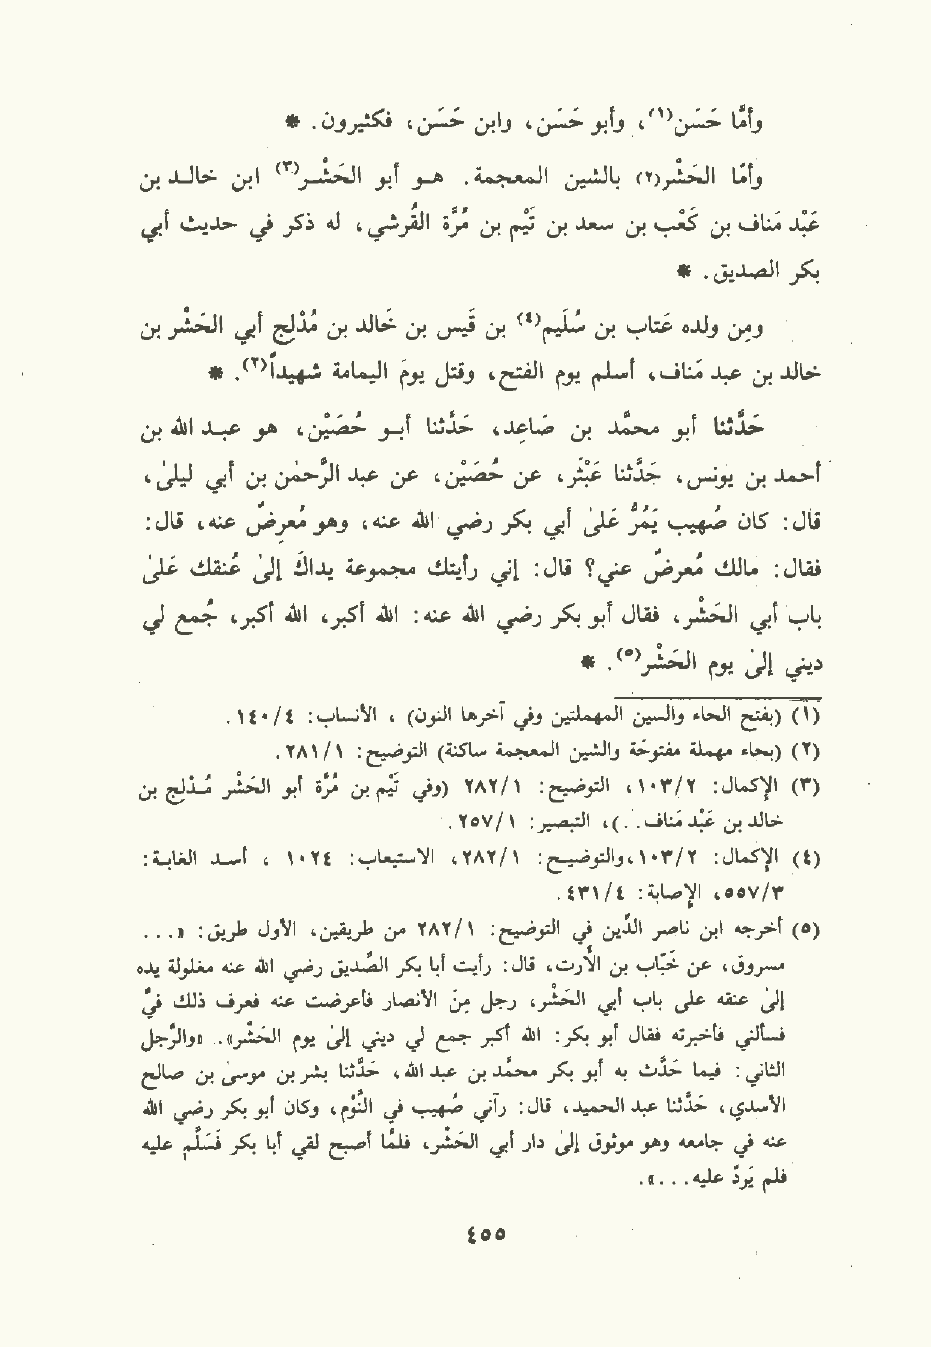 وأمَّا حَسَن(١)، وأبو حَسَن، وابن حَسَن، فكثيرون. *
وأمّا الحَشْر(٢) بالشين المعجمة. هو أبو الحَشْر(٣) ابن خالد بن
عَبْد مَناف بن كَعْب بن سعد بن تَيْم بن مُرَّة القُرشي، له ذكر في حديث أبي
بكر الصديق. *
ومِن ولده عَتاب بن سُلَيم(٤) بن قَيس بن خَالد بن مُدْلِج أبي الحَشْر بن
خالد بن عبد مَناف، أسلم يوم الفتح، وقتل يومَ اليمامة شهيداً(٢). *
حَدَّثنا أبو محمَّد بن صَاعِد، حَدَّثنا أبو حُصَيْن، هو عبد الله بن
أحمد بن يونس، حَدَّثنا عَبْثَر، عن حُصَيْن، عن عبد الرَّحمٰن بن أبي ليلىٰ،
قال: كان صُهيب يَمُرُّ علىٰ أبي بكر رضي الله عنه، وهو مُعرِضٌ عنه، قال:
فقال: مالك مُعرِضٌ عني؟ قال: إني رأيتك مجموعة يداكَ إلىٰ عُنقك علىٰ
باب أبي الحَشْر، فقال أبو بكر رضي الله عنه: الله أكبر، الله أكبر، جُمع لي
ديني إلىٰ يوم الحَشْر(٥). *
(١) (بفتح الحاء والسين المهملتين وفي آخرها النون) ، الأنساب: ١٤٠/٤.
(٢) (بحاء مهملة مفتوحة والشين المعجمة ساكنة) التوضيح: ٢٨١/١.
(٣) الإكمال: ١٠٣/٢، التوضيح: ٢٨٢/١ (وفي تَيْم بن مُرَّة أبو الحَشْر مُدْلِج بن
خالد بن عَبْد مَناف..)، التبصير: ٢٥٧/١.
(٤) الإكمال: ١٠٣/٢، والتوضيح: ٢٨٢/١، الاستيعاب: ١٠٢٤ ، أسد الغابة:
٥٥٧/٣، الإصابة: ٤٣١/٤.
(٥) أخرجه ابن ناصر الدِّين في التوضيح: ٢٨٢/١ من طريقين، الأول طريق: «...
مسروق، عن خَبَّاب بن الأرت، قال: رأيت أبا بكر الصِّديق رضي الله عنه مغلولة يده
إلىٰ عنقه على باب أبي الحَشْر، رجل مِن الأنصار فأعرضت عنه فعرف ذلك فيَّ
فسألني فأخبرته فقال أبو بكر: الله أكبر جمع لي ديني إلىٰ يوم الحَشْر». «والرَّجل
الثاني: فيما حَدَّث به أبو بكر محمَّد بن عبد الله، حَدَّثنا بشر بن موسىٰ بن صالح
الأسدي، حَدَّثنا عبد الحميد، قال: رآني صُهيب في النَّوْم، وكان أبو بكر رضي الله
عنه في جامعه وهو موثوق إلىٰ دار أبي الحَشْر، فلمَّا أصبح لقي أبا بكر فَسَلَّم عليه
فلم يَردَّ عليه...».
٤٥٥